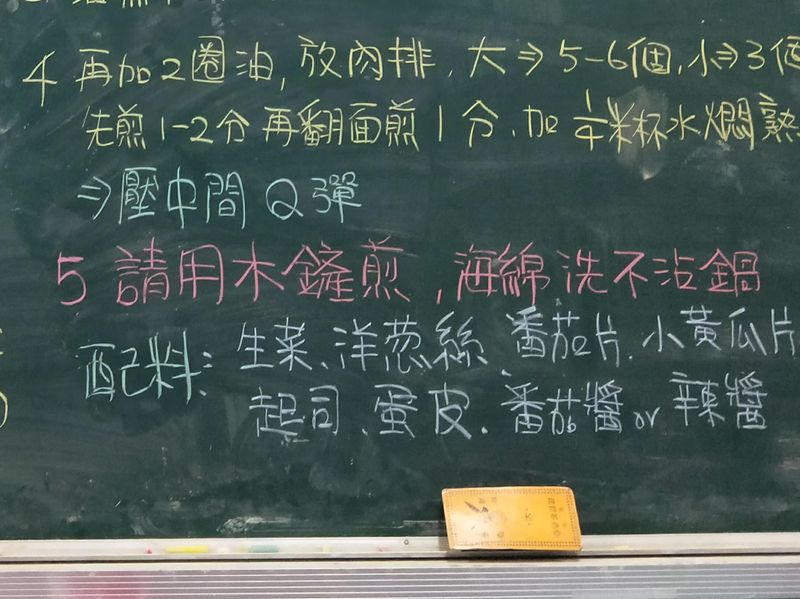 4 再加2圈油,放肉排,大⇒5-6個,小⇒3個
先煎1-2分再翻面煎1分,加1/4米杯水燜熟
⇒壓中間Q彈
5 請用木鏟煎,海綿洗不沾鍋
配料:生菜、洋葱絲、番茄片、小黃瓜片
起司、蛋皮、番茄醬or辣醬